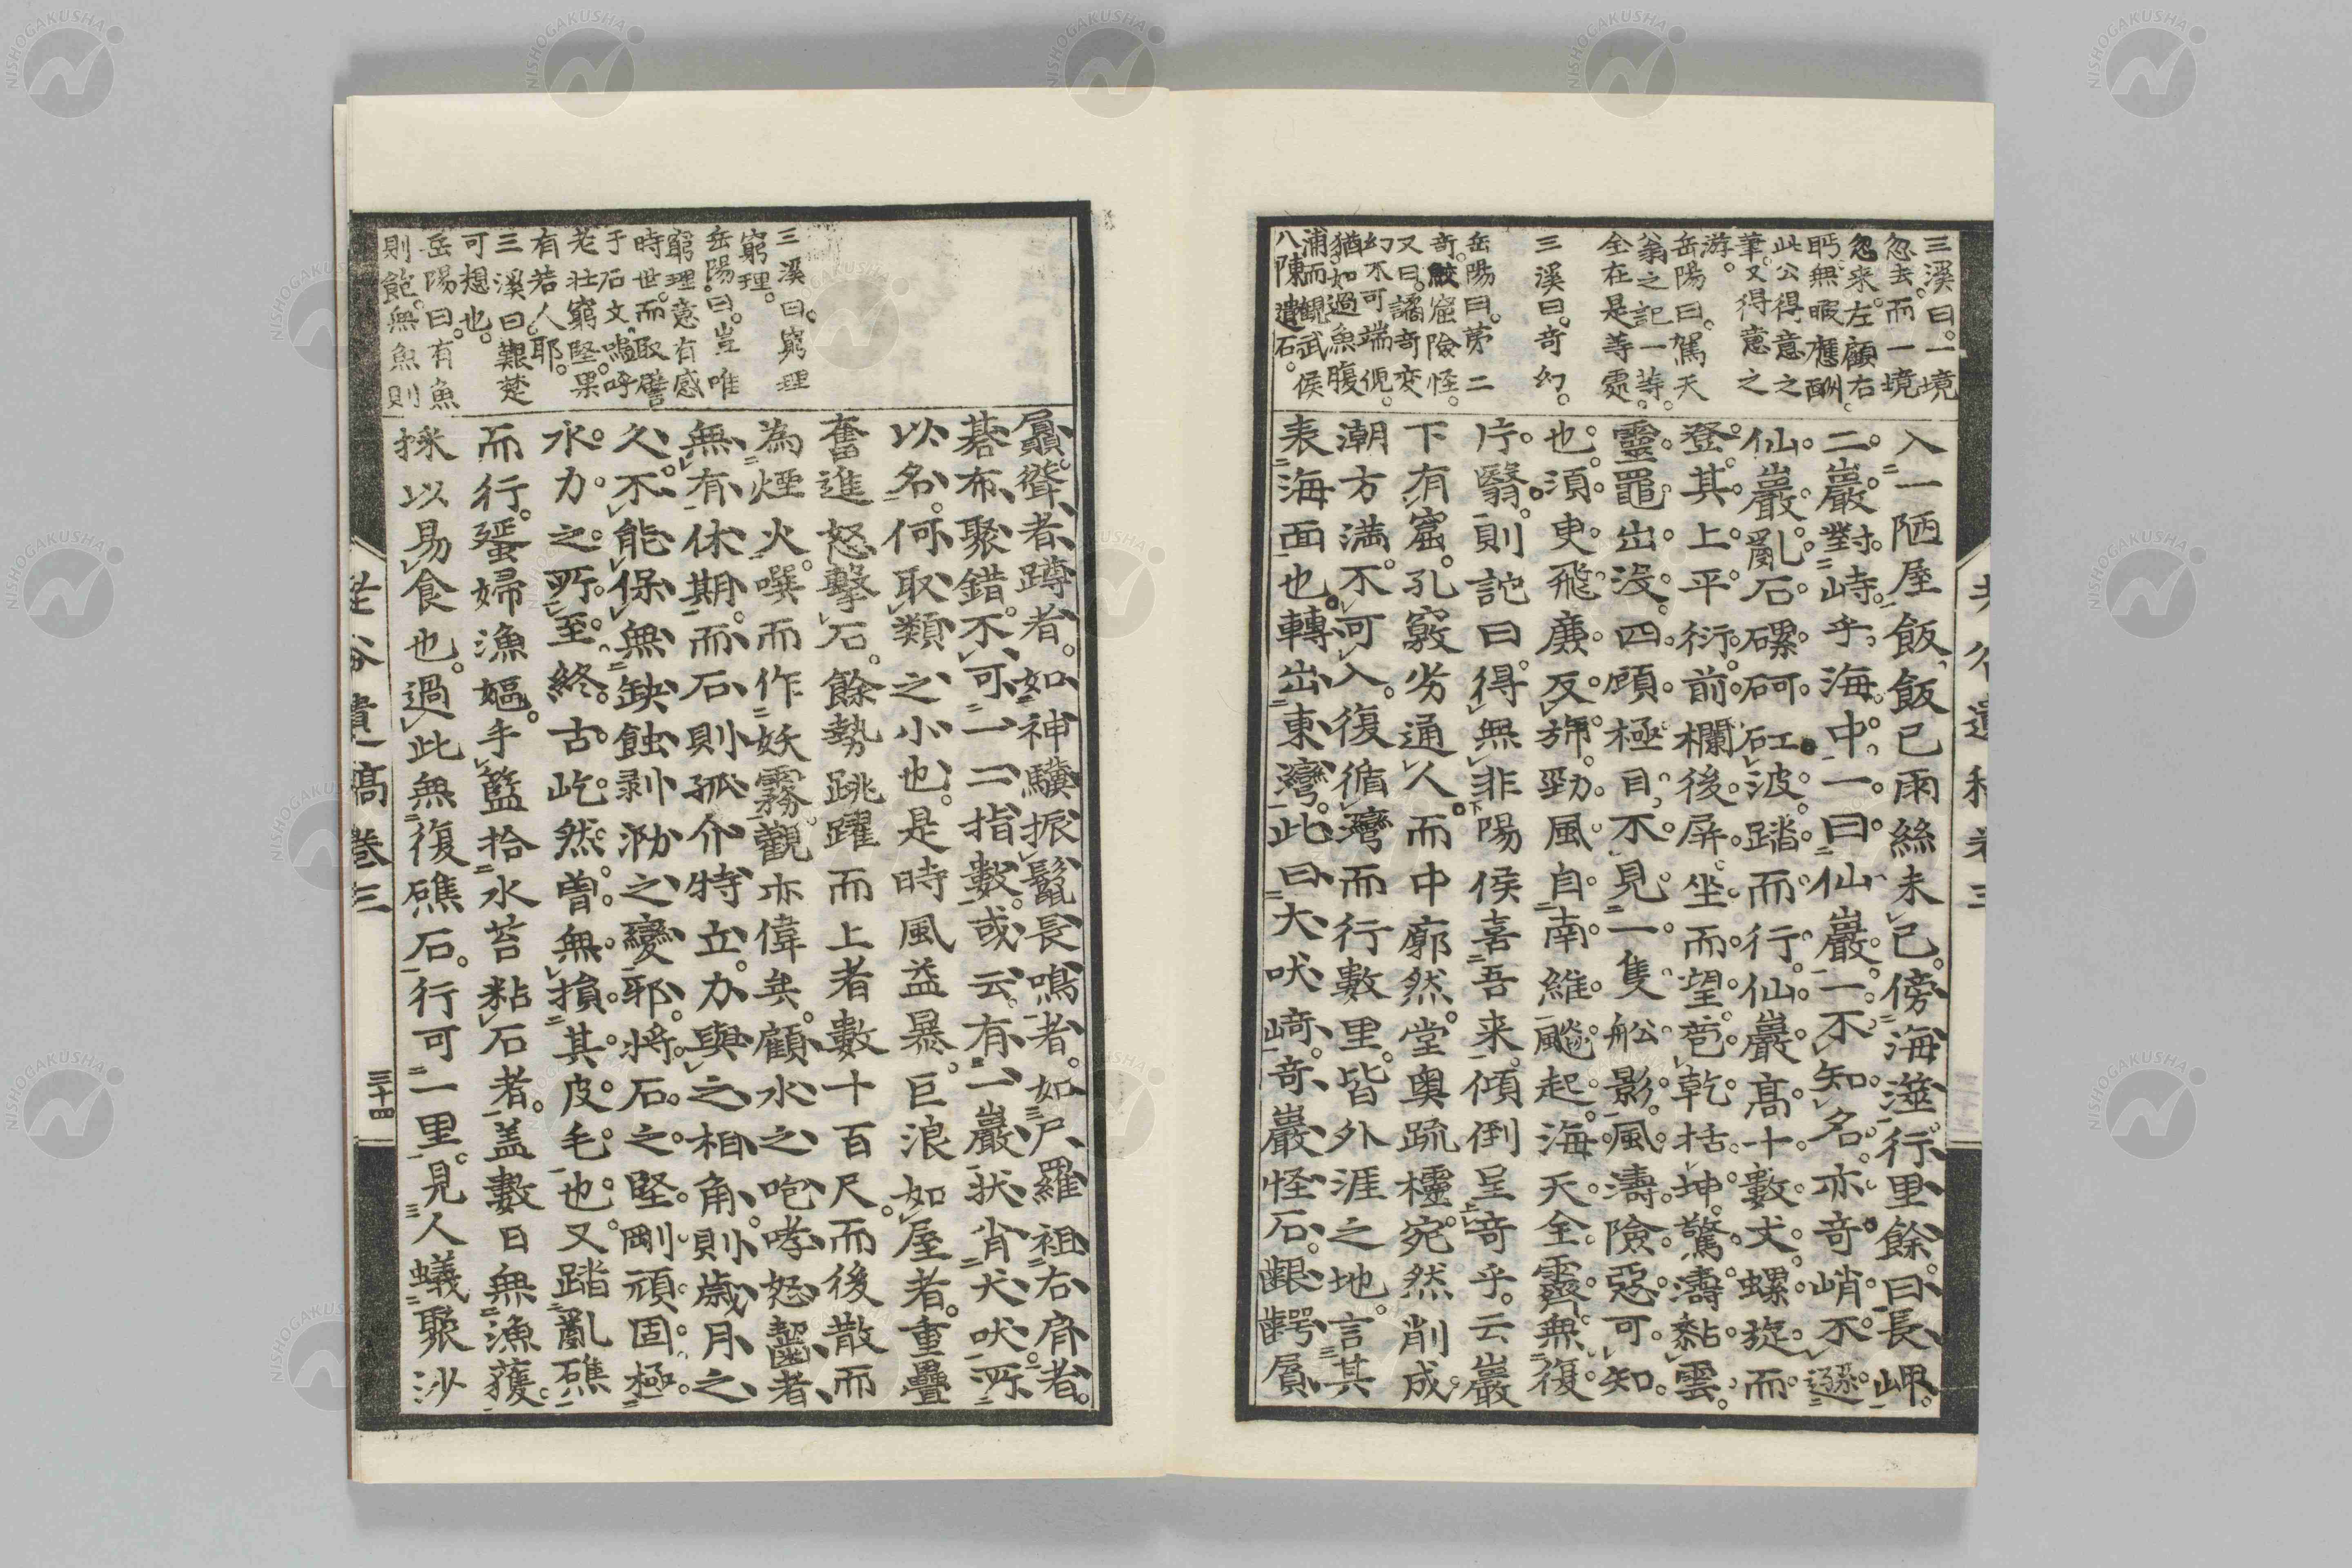 三溪曰。一境
忽去。而一境
忽来。左顧右
眄。無暇應酬。
此公得意之
筆。又得意之
游。
岳陽曰。駕天
翁之記一等。
全在是等處
三溪曰。奇幻。
岳陽曰。第二
奇。鮫窟險怪。
又曰。譎奇变
幻不可端倪。
猶如過魚腹
浦而觀武侯
八陳遺石。
入一陋屋飯、飯已雨絲未已。傍海遊行里餘。曰長岬。
二巖對峙乎海中。一曰仙巖。一不知名。亦奇峭不遜
仙巖。亂石磥砢矼波。踏而行。仙巖高十數丈。螺旋而
登。其上平衍。前欄後屏。坐而望。苞乾括坤。驚濤黏雲。
靈鼉出没。四顧極目。不見一隻舩影。風濤險惡可知
也。須臾飛廉反斾。勁風自南維颷起。海天全霽。無復
片翳。則詫曰。得無非陽侯喜吾来。傾倒呈奇乎。云巖
下有窟。孔竅劣通人。而中廓然。堂奥疏櫺。宛然削成。
潮方満。不可入。復循灣而行數里。皆外涯之地。言其
表海面也。轉出東灣。此曰犬吠﨑。奇巖怪石。齦齶屓
屭聳者。蹲者。如神驥振鬣長鳴者。如尸羅袒右肩者。
碁布聚錯。不可一二指數。或云。有一巖。状肖犬吠。所
以名。何取類之小也。是時風益暴。巨浪如屋者。重疊
奮進。怒擊石。餘勢跳躍而上者數十百尺。而後散而
為煙火。噀而作妖霧。觀亦偉矣。顧水之咆哮怒齧者、
無有休期。而石則孤介特立。力與之相角。則歲月之
久。不能保無缺蝕剥泐之變耶。将石之堅剛頑固。極
水力之所至。終古屹然。曽無損其皮毛也。又踏亂礁
而行。蜑婦漁嫗。手籃拾水苔粘石者。盖數日無漁獲。
採以易食也。過此無復礁石。行可一里。見人蟻聚沙
三溪曰。窮理
窮理。
岳陽曰。豈唯
窮理。意有感
時世。而取譬
于石文。嗚呼
老壮窮堅。果
有若人耶。
三溪曰。艱楚
可想也。
岳陽曰。有魚
則飽。無魚則
遺稿 巻三
三十四